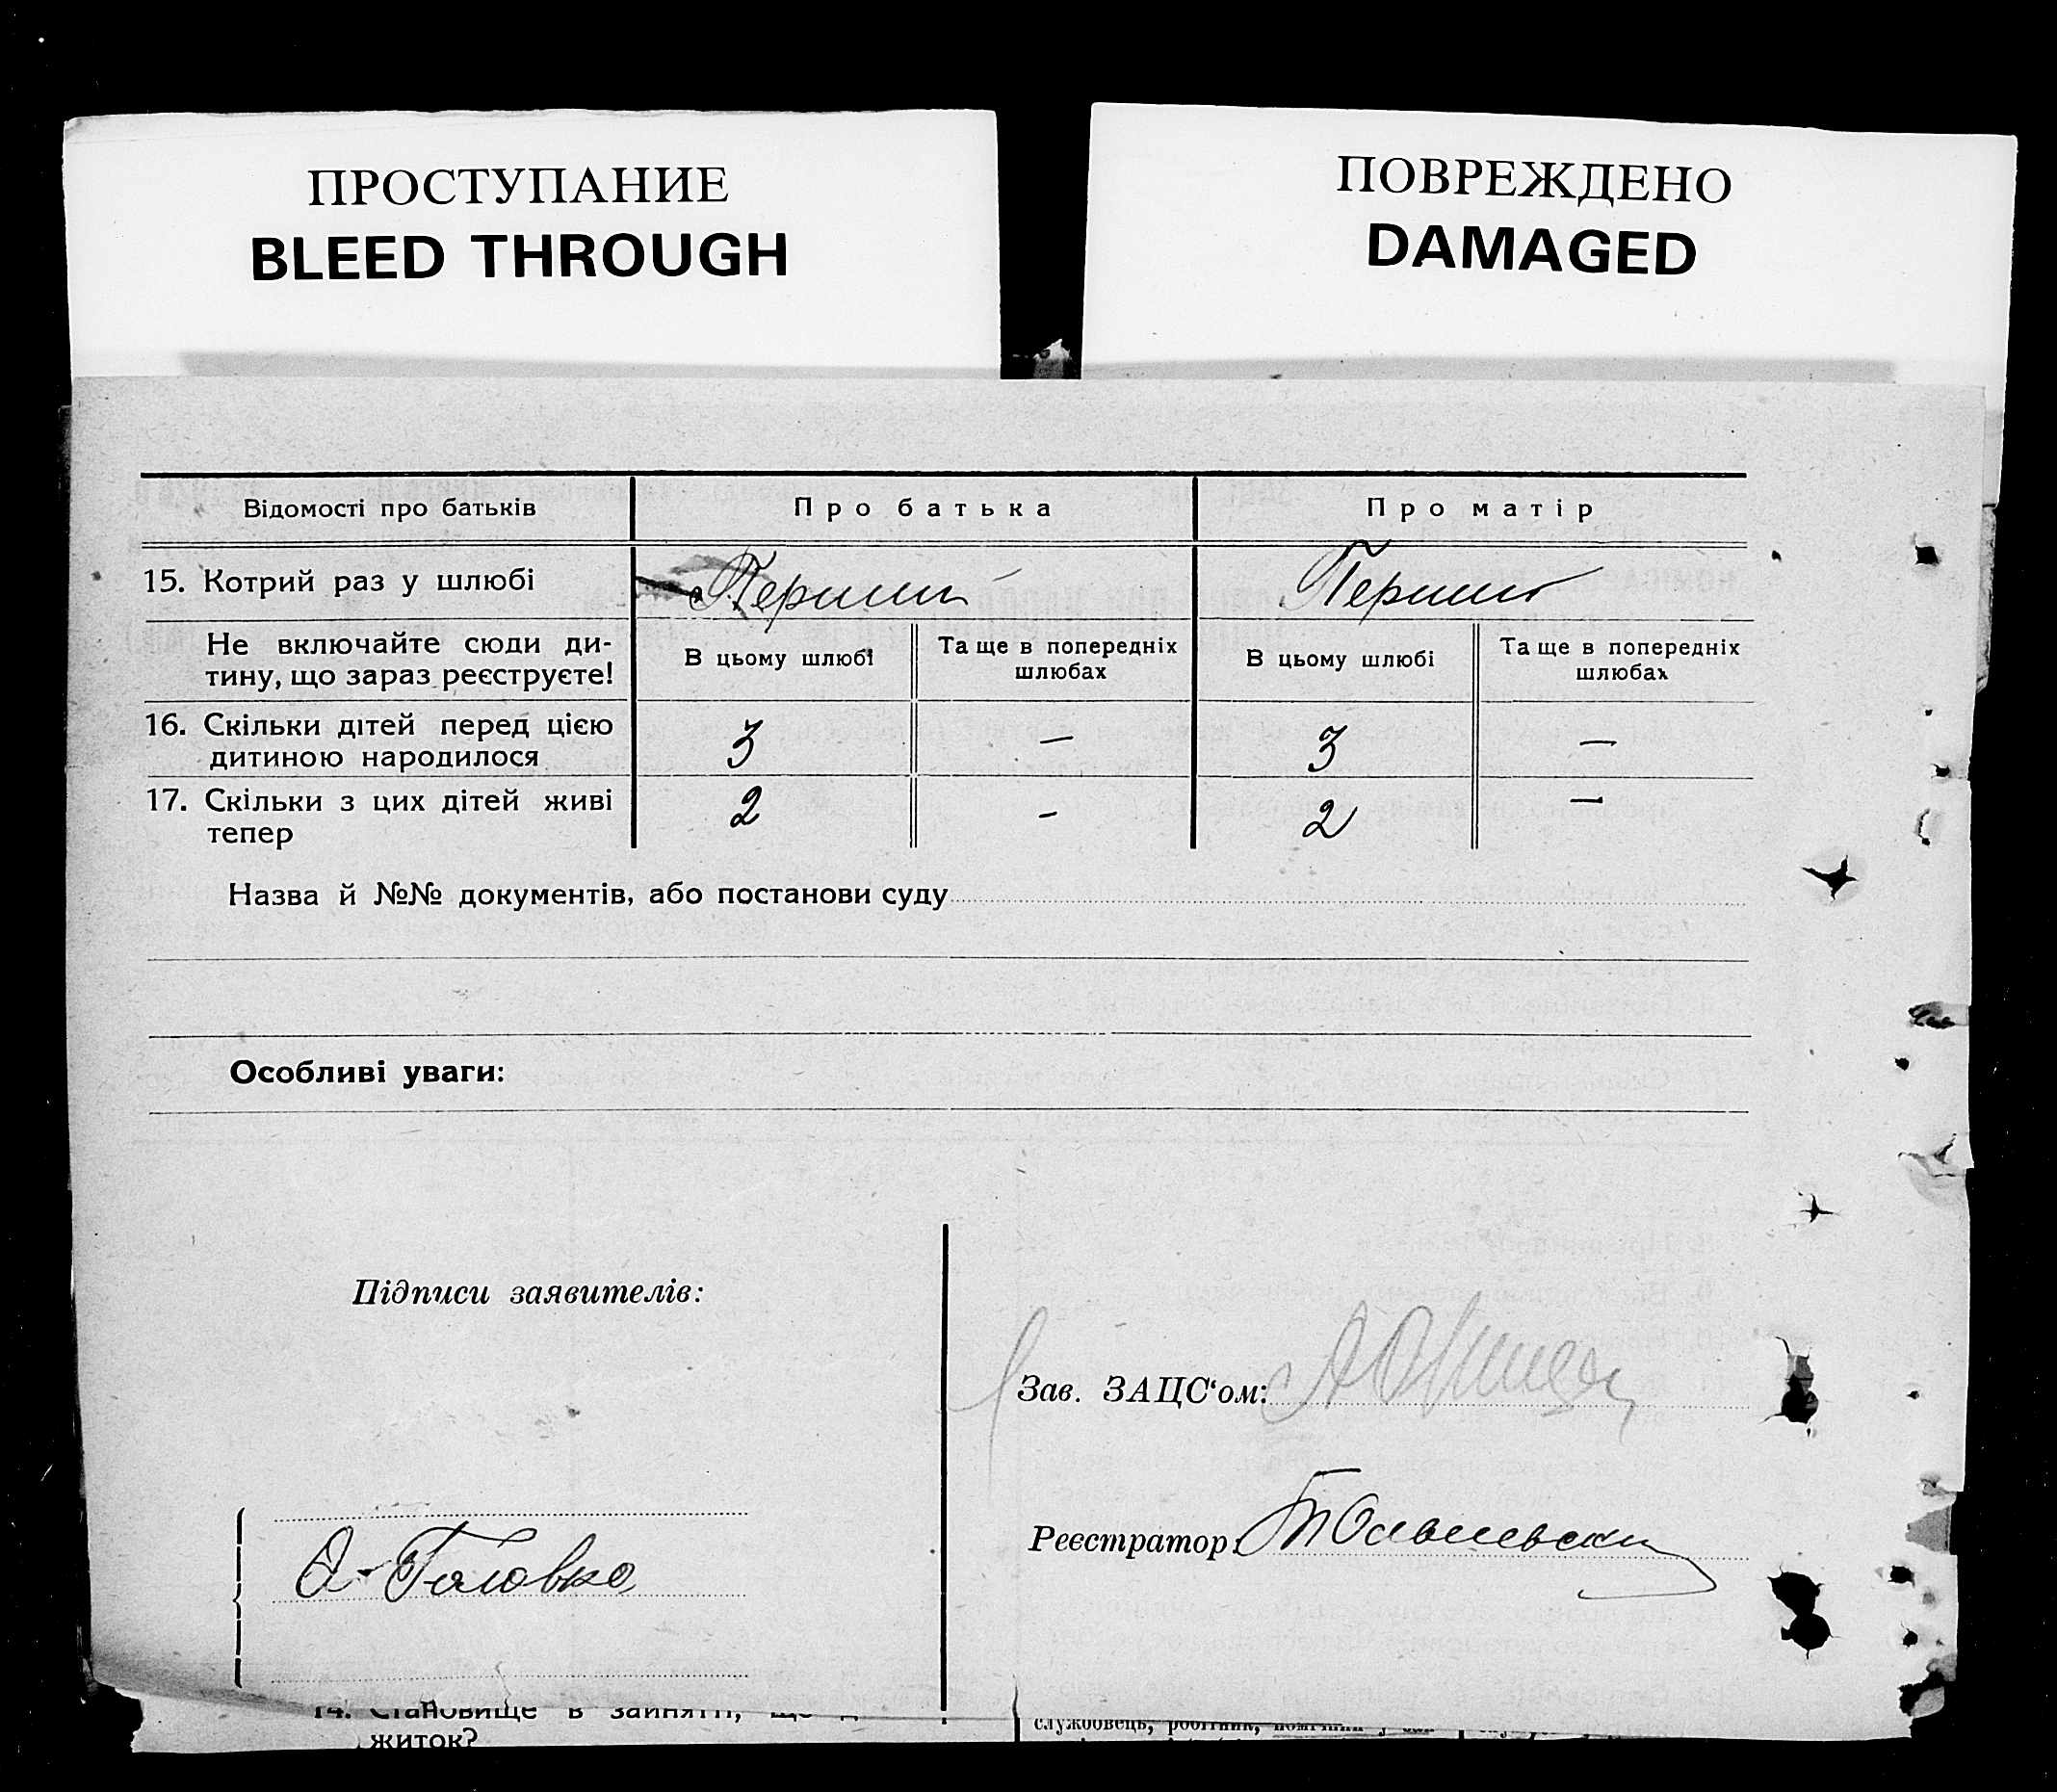 ПРОСТУПАНИЕ
BLEED THROUGH
ПОВРЕЖДЕНО
DAMAGED
Відомості про батьків
Про батька
Про матір
15. Котрий раз у шлюбі
Перший
Перший
Не включайте сюди ди-
тину, що зараз реєструєте!
В цьому шлюбі
Та ще в попередніх
шлюбах
В цьому шлюбі
Та ще в попередніх
шлюбах
16. Скільки дітей перед цією
дитиною народилося
3
—
3
—
17. Скільки з цих дітей живі
тепер
2
-
2
—
Назва й №№ документів, або постанови суду
Особливі уваги:
Підписи заявителів:
Зав. ЗАЦС‘ом:
Реєстратор
Головко
14. Становище в занятті, що
житок?
службовець, робітник,